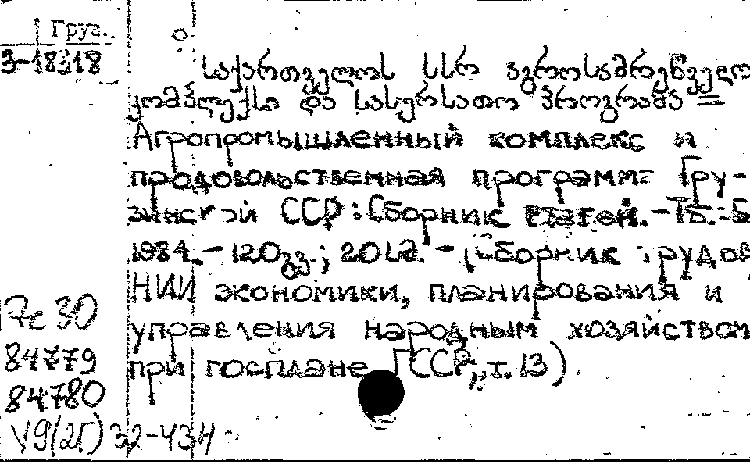 Груз.
3-18318
საქართველოს სსრ აგროსამრეწველო
კომპლექსი და სასურსათო პროგრამა =
Агропромышленный комплекс и
продовольственная программа Гру-
зинской ССР : Сборник статей. - Тб. : Б
1984. - 120 გვ.; 20 სმ. - (Сборник трудов
НИИ экономики, планирования и
управления народным хозяйством
при госплане ГССР, т. 13)
7с 30
84779
84780
V9(2Г)32-434